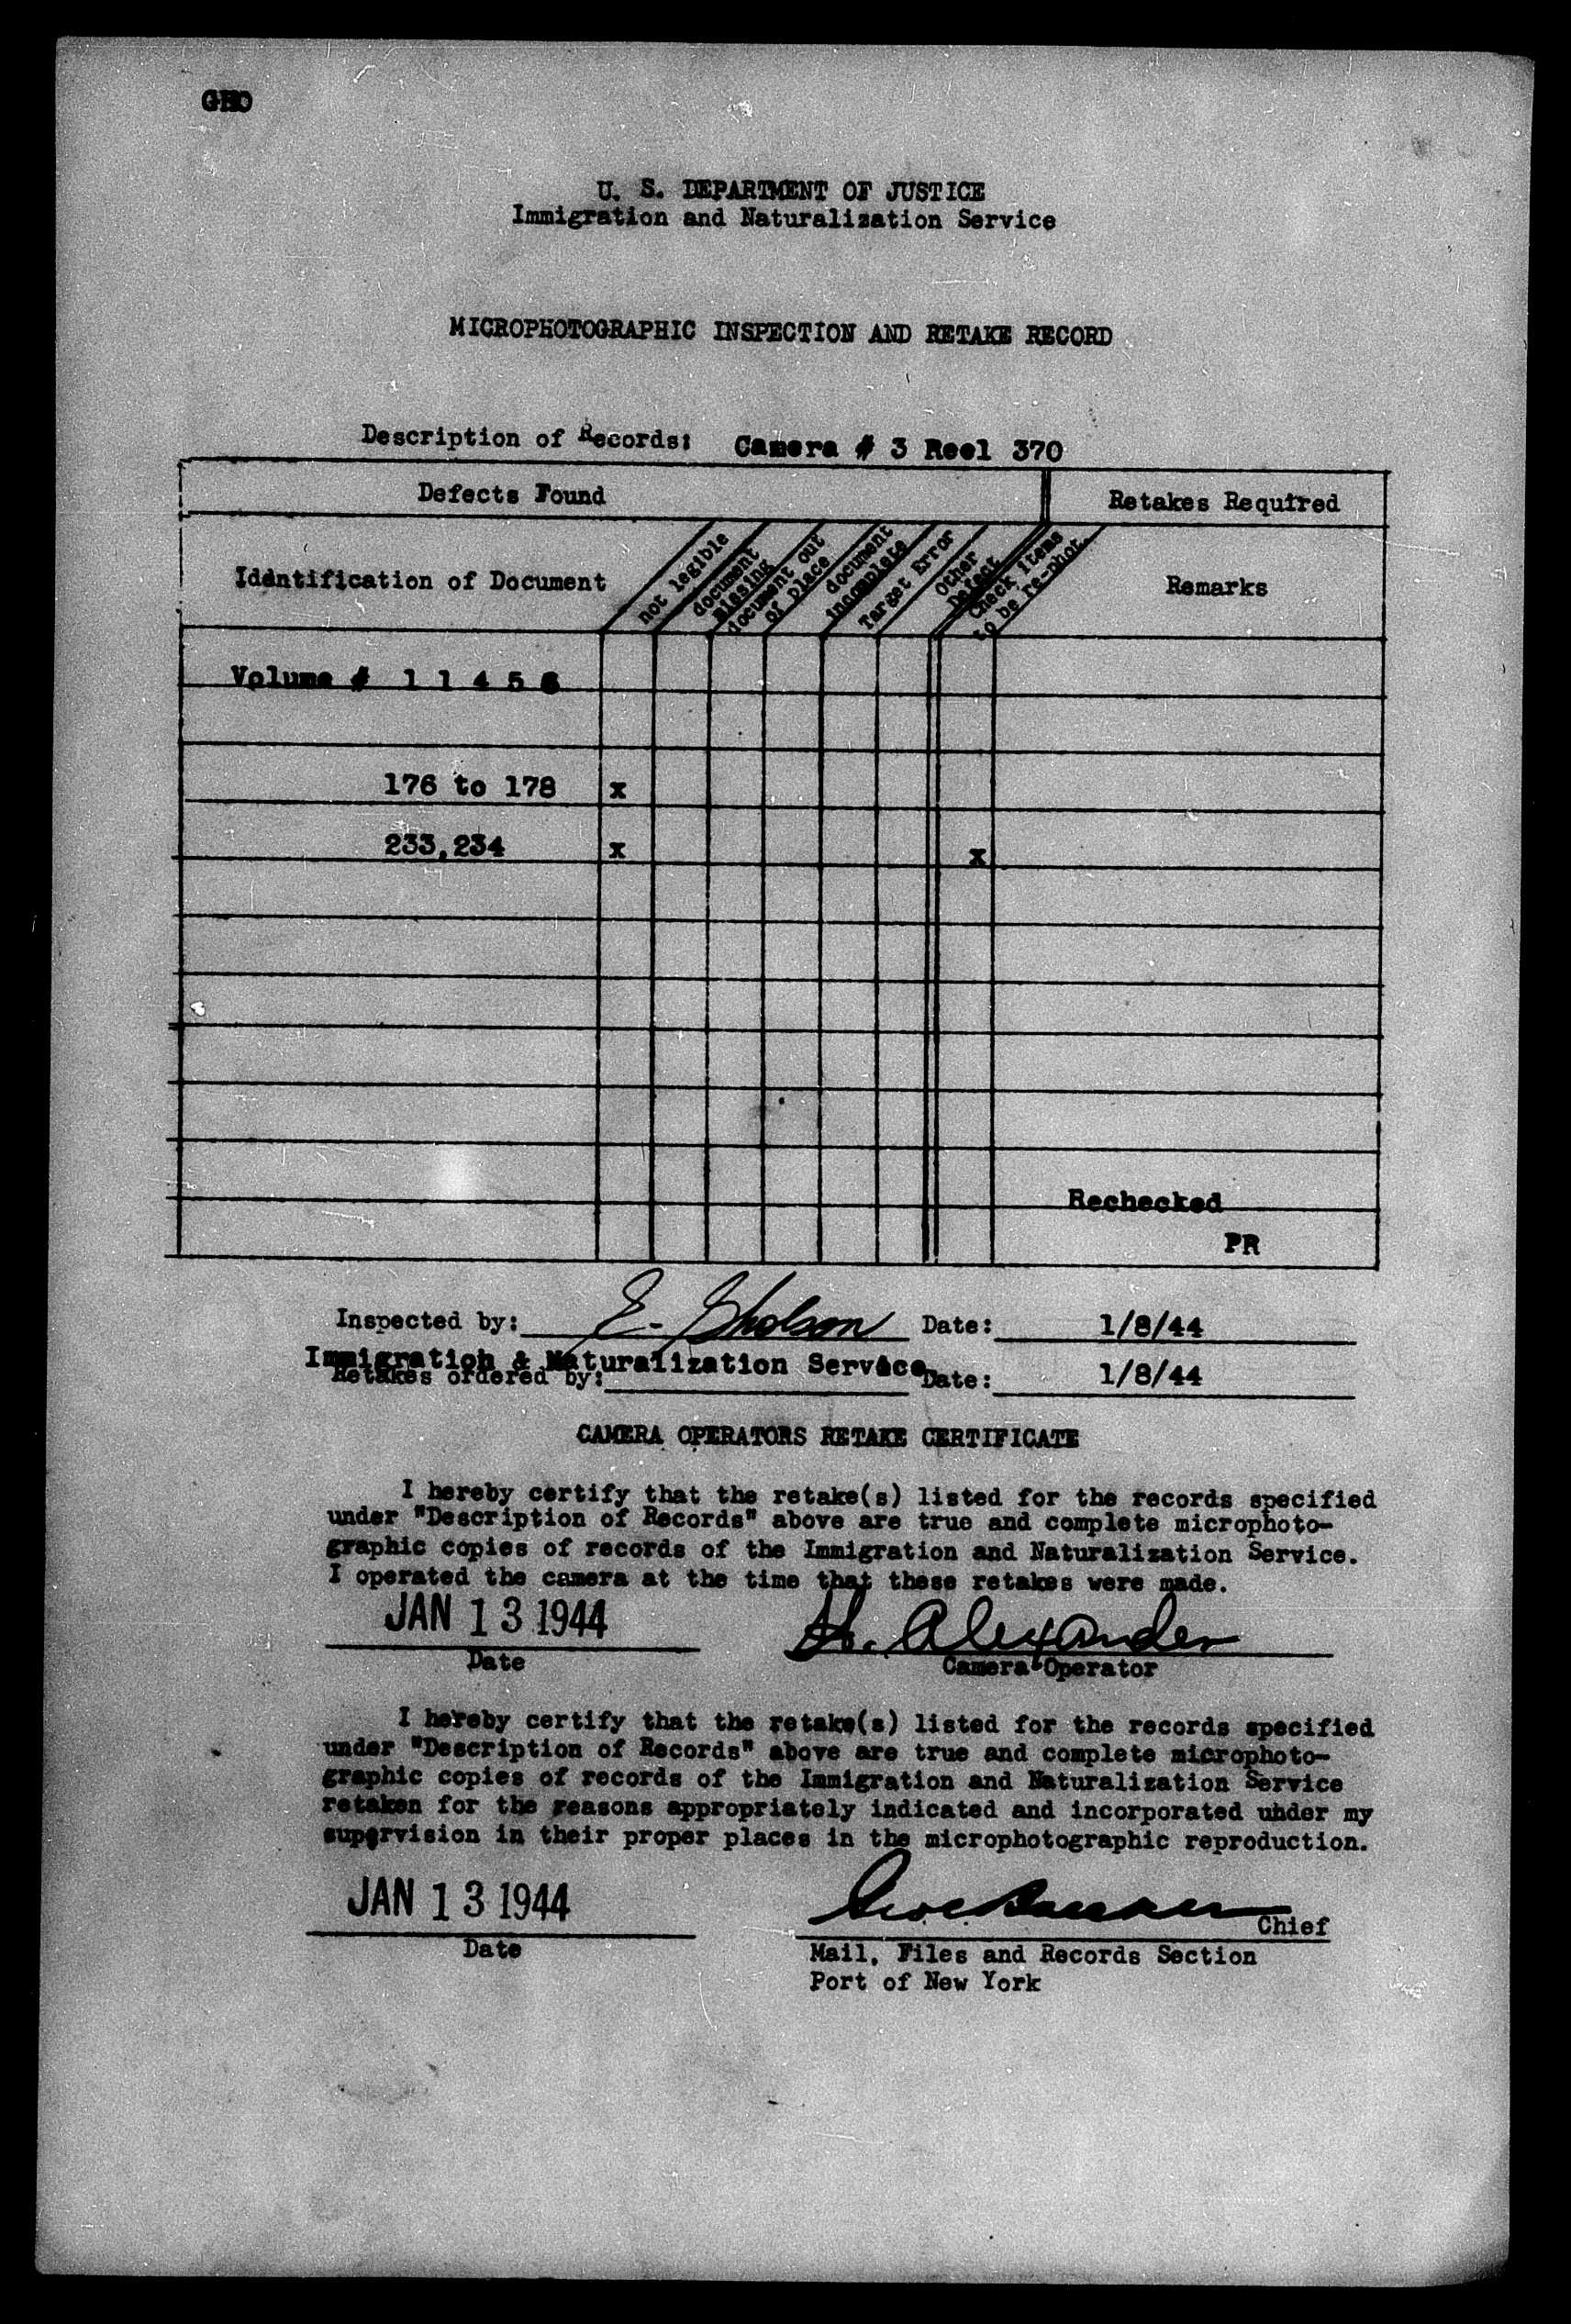 U. S. DEPARTMENT OF JUSTICE
Immigration and Naturalization Service
MICROPHOTOGRAPHIC INSPECTION AND RETAKE RECORD
Description of Records: Camera # 3 Reel 370
Defects Found
Retakes Required
Identification of Document
not legible
document missing
document out of place
document incomplete
Target Error
Other Defect
Check items to be re-phot.
Remarks
Volume # 1 1 4 5
176 to 178 x
233,234 x x
Rechecked
PR
Inspected by: E. Gholson Date: 1/8/44
Immigration & Naturalization Service
Retakes ordered by: Date: 1/8/44
CAMERA OPERATORS RETAKE CERTIFICATE
I hereby certify that the retake(s) listed for the records specified
under "Description of Records" above are true and complete microphoto-
graphic copies of records of the Immigration and Naturalization Service.
I operated the camera at the time that these retakes were made.
JAN 13 1944 Alexander
Date Camera Operator
I hereby certify that the retake(s) listed for the records specified
under "Description of Records" above are true and complete microphoto-
graphic copies of records of the Immigration and Naturalization Service
retaken for the reasons appropriately indicated and incorporated under my
supervision in their proper places in the microphotographic reproduction.
JAN 13 1944
Chief
Date
Mail, Files and Records Section
Port of New York